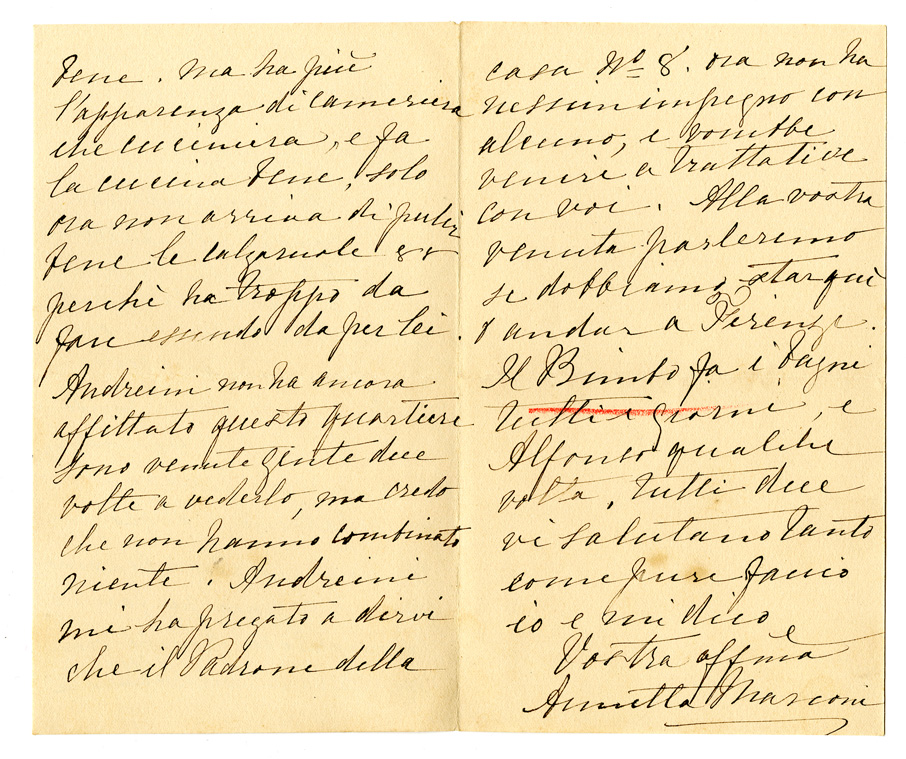 bene. ma ha più
l'apparenza di cameriera
che cuciniera, e fa
la cucina bene, solo
ora non arriva di pulir
bene le calzaruole &&
perchè ha troppo da
fare essendo da per lei.
Andreini non ha ancora
affittato questo quartiere
sono venute gente due
volte a vederlo, ma credo
che non hanno combinato
niente. Andreini
mi ha pregato a dirvi
che il Padrone della
casa No 8. ora non ha
nessun impegno con
alcuno, e
venire a trattative
con voi. Alla vostra
venuta parleremo
se dobbiamo star quì
o andar a Firenze.
Il Bimbo fa i bagni
tutti i giorni, e
Alfonso qualche
volta. Tutti due
vi salutano tanto
come pure faccio
io e mi dico
Vostra affma
Annetta Marconi